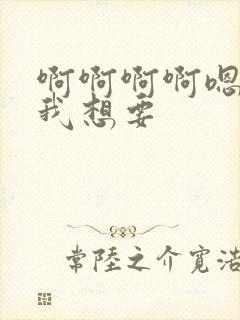 啊啊啊啊嗯
我想要
常陸之介寛浩